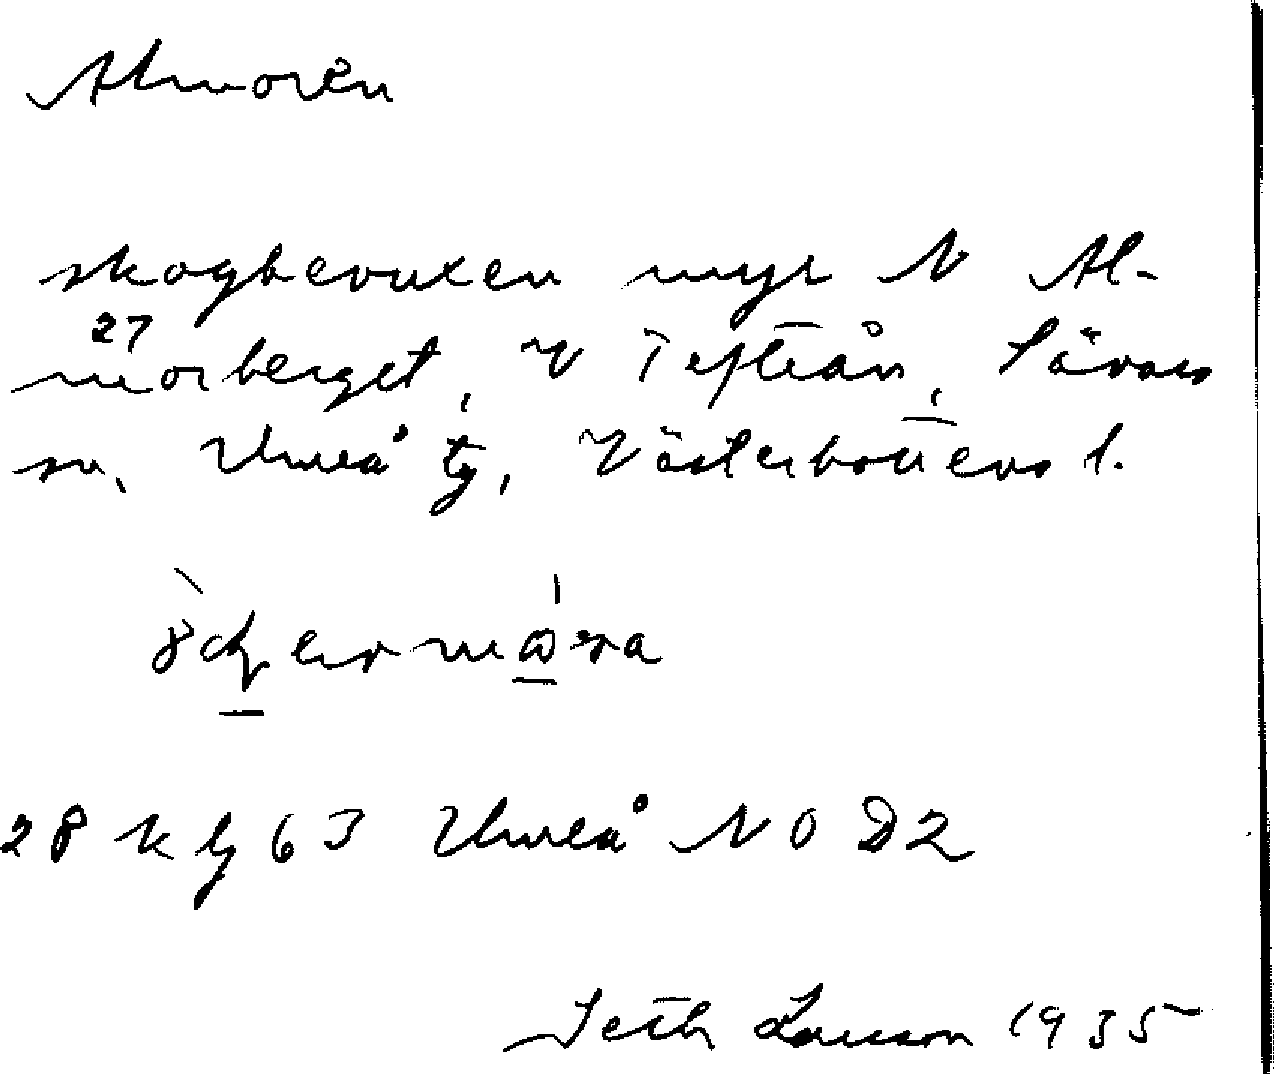 Almorén
skogbevuxen myr N Al-
27
morberget, V Tefteån, Sävars
sn, Umeå tg, Västerbottens l.
28 kg 63 Umeå NO D2
Seth Larsson 1935